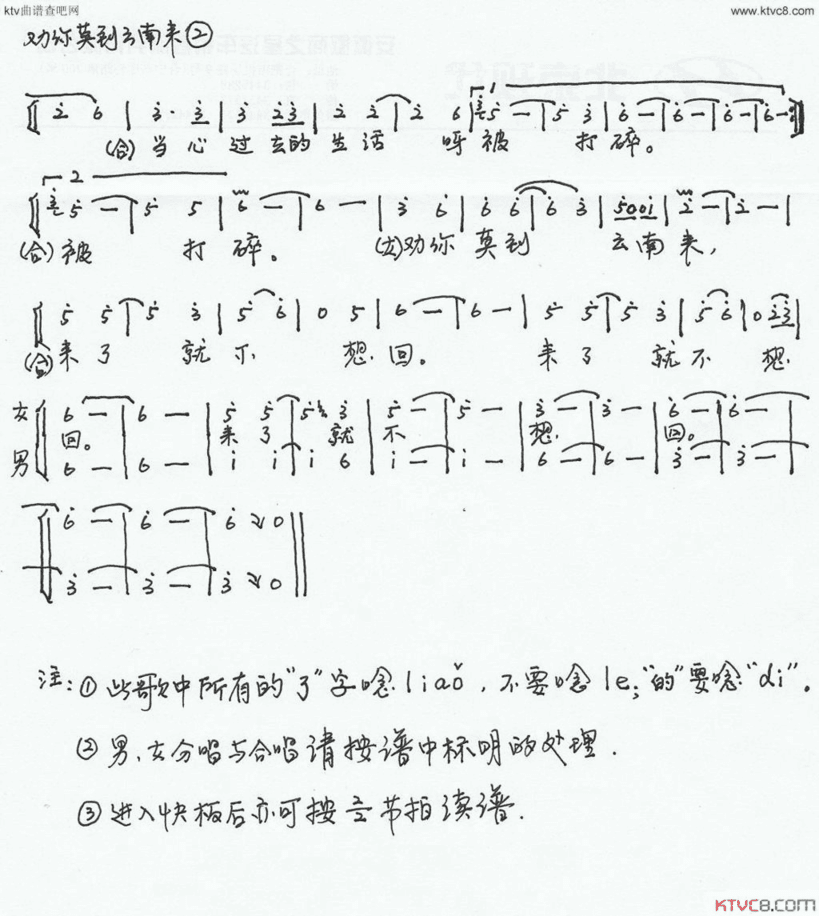 ktv曲谱查吧网 www.ktvc8.com
劝你莫到云南来②
2̇ 6 | 3̇ · 3̇ | 3̇ 2̇3̇ | 2̇ 2̇ | 2̇ 6 | 5̇ — | 5̇ 3̇ | 6̇ — | 6̇ — | 6̇ — | 6̇ — :|
(合)当心过去的生活呀被打碎。
2
5̇ — | 5̇ 5̇ | 6̇ — | 6̇ — | 3̇ 6̇ | 6̇ 6̇ | 6̇ 3̇ | 5̇001̇ | 2̇ — | 2̇ — |
(合)被打碎。 (女)劝你莫到云南来,
5̇ 5̇ | 5̇ 3̇ | 5̇ 6̇ | 0 5 | 6 — | 6 — | 5̇ 5̇ | 5̇ 3̇ | 5̇ 6̇ | 0 2̇3̇ |
(合)来了就不想回。 来了就不想
女 6 — | 6 — | 5̇ 5̇ | 5̇ 3̇ | 5̇ — | 5̇ — | 3̇ — | 3̇ — | 6̇ — | 6̇ — |
回。 来了就不想回。
男 6 — | 6 — | i i | i 6 | i — | i — | 6 — | 6 — | 3̇ — | 3̇ — |
6̇ — | 6̇ — | 6̇ 0 ||
3̇ — | 3̇ — | 3̇ 0 ||
注:①此歌中所有的"了"字唸liaǒ,不要唸le;"的"要唸"di"。
②男、女分唱与合唱请按谱中标明的处理.
③进入快板后亦可按三节拍读谱.
KTVC8.com